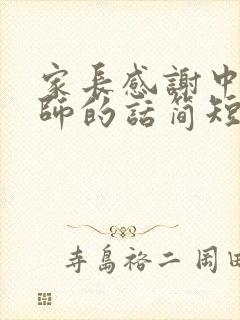 家長感謝中
師的話简短
寺島裕二 岡田